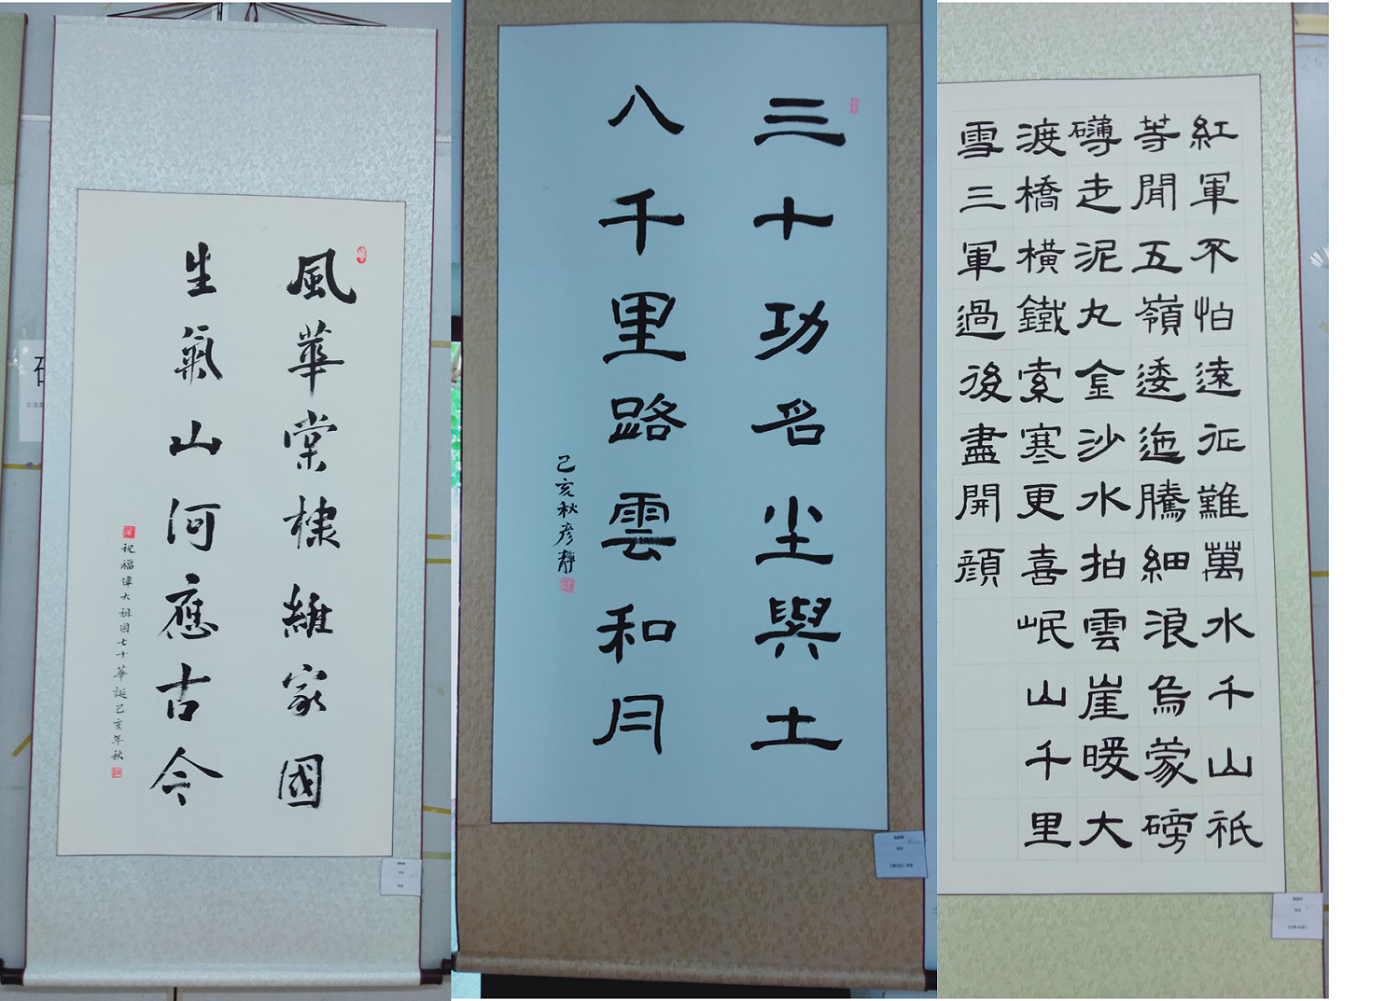 風華棠棣維家國
生氣山河應古今
祝福偉大祖國七十華誕己亥年秋
三十功名尘與土
八千里路雲和月
己亥秋彦静
紅軍不怕遠征難萬水千山祇
等閒五嶺逶迤騰細浪烏蒙磅
礴走泥丸金沙水拍雲崖暖大
渡橋橫鐵索寒更喜岷山千里
雪三軍過後盡開顏